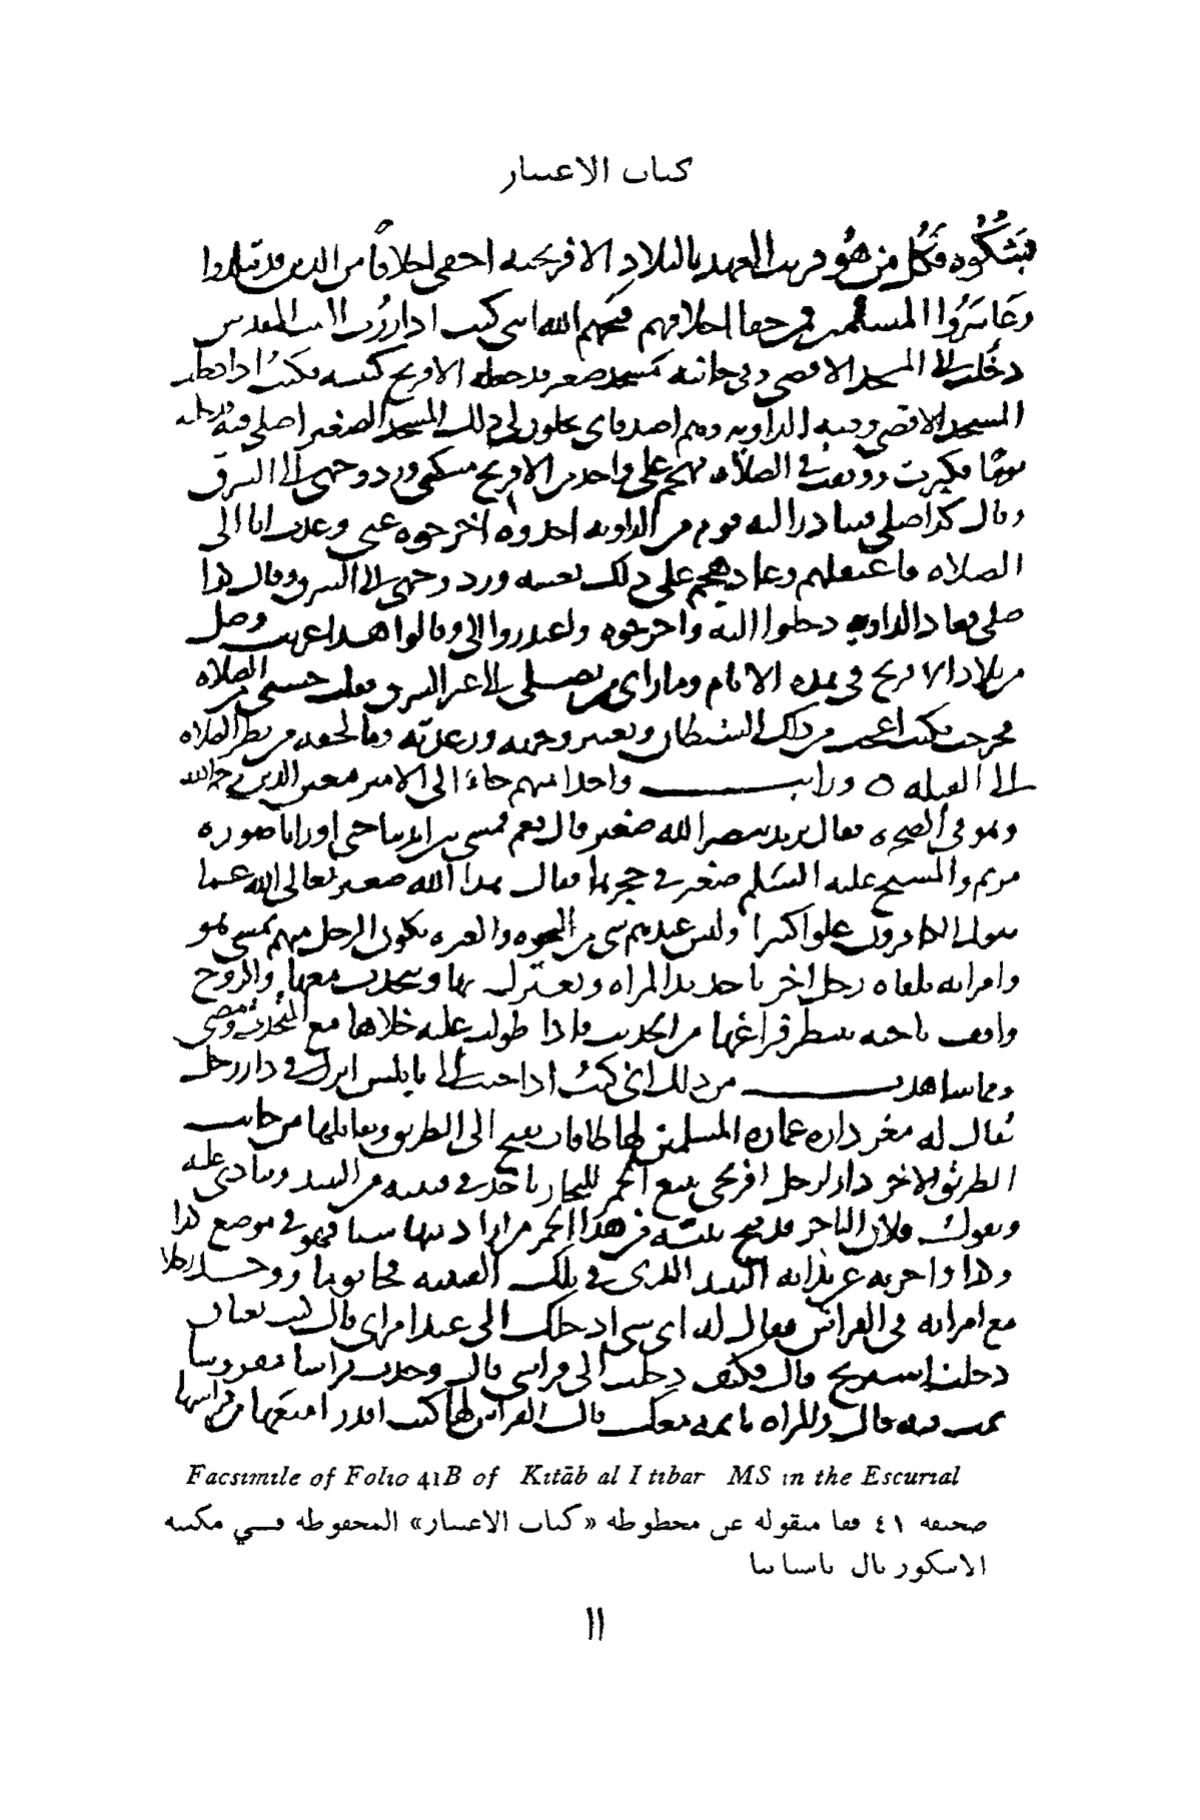 كتاب الاعتبار
فكل من هو قريب العهد بالبلاد الافرنجية اجفى اخلاقا من الذين قد تبلدوا
وعاشروا المسلمين فمن جفا اخلاقهم قبحهم الله انني كنت اذا زرت البيت المقدس
دخلت الى المسجد الاقصى وفي جانبه مسجد صغير قد جعله الافرنج كنيسه فكنت اذا دخلت
المسجد الاقصى وفيه الداويه وهم اصدقاي يخلون لي ذلك المسجد الصغير اصلي فيه فدخلته
يوما فكبرت ووقفت في الصلاه فهجم علي واحد من الافرنج مسكني ورد وجهي الى الشرق
وقال كذا صلي فتبادر اليه قوم من الداويه اخذوه اخرجوه عني وعدت انا الى
الصلاه فاغتفلهم وعاد هجم علي ذلك بعينه ورد وجهي الى الشرق وقال كذا
صلي فعاد الداويه دخلوا اليه واخرجوه واعتذروا الي وقالوا هذا غريب وصل
من بلاد الافرنج في هذه الايام وما راى من يصلي الى غير الشرق فقلت حسبي من الصلاه
فخرجت فكنت اعجب من ذاك الشيطان وتغير وجهه ورعدته وما لحقه من نظر الصلاه
الى القبله ٥ ورايت واحدا منهم جاء الى الامير معين الدين رحمه الله
وهو في الصخره فقال تريد تبصر الله صغير قال نعم فمشى بين ايدينا حتى اورانا صوره
مريم والمسيح عليه السلم صغير في حجرها فقال هذا الله صغير تعالى الله عما
يقول الكافرون علوا كبيرا وليس عندهم شي من النخوه والغيره يكون الرجل منهم يمشي هو
وامراته يلقاه رجل اخر ياخذ يد المراه ويعتزل بها ويتحدث معها والزوج
واقف ناحيه ينتظر فراغها من الحديث فاذا طولت عليه خلاها مع المتحدث ومضى
ومما شاهدت من ذلك اني كنت اذا جيت الى نابلس انزل في دار رجل
يقال له معز داره عماره المسلمين لها طاقات تفتح الى الطريق ويقابلها من جانب
الطريق الاخر دار لرجل افرنجي يبيع الخمر للتجار ياخذ في قنينه من النبيذ وينادي عليه
ويقول فلان التاجر قد فتح بتيه من هذا الخمر من اراد منها شيا فهو في موضع كذا
وكذا واجرته عن ندايه النبيذ الذي في تلك القنينه فجا يوما ووجد رجلا
مع امراته في الفراش فقال له اي شي ادخلك الى عند امراتي قال كنت تعبان
دخلت استريح قال فكيف دخلت الى فراشي قال وجدت فراشا مفروشا
نمت فيه قال والمراه نايمه معك قال الفراش لها كنت اقدر امنعها من فراشها
Facsimile of Folio 41B of Kitāb al I tibar MS in the Escurial
صحيفة ٤١ قفا منقولة عن مخطوطة «كتاب الاعتبار» المحفوظة في مكتبة
الاسكوريال باسبانيا
١١